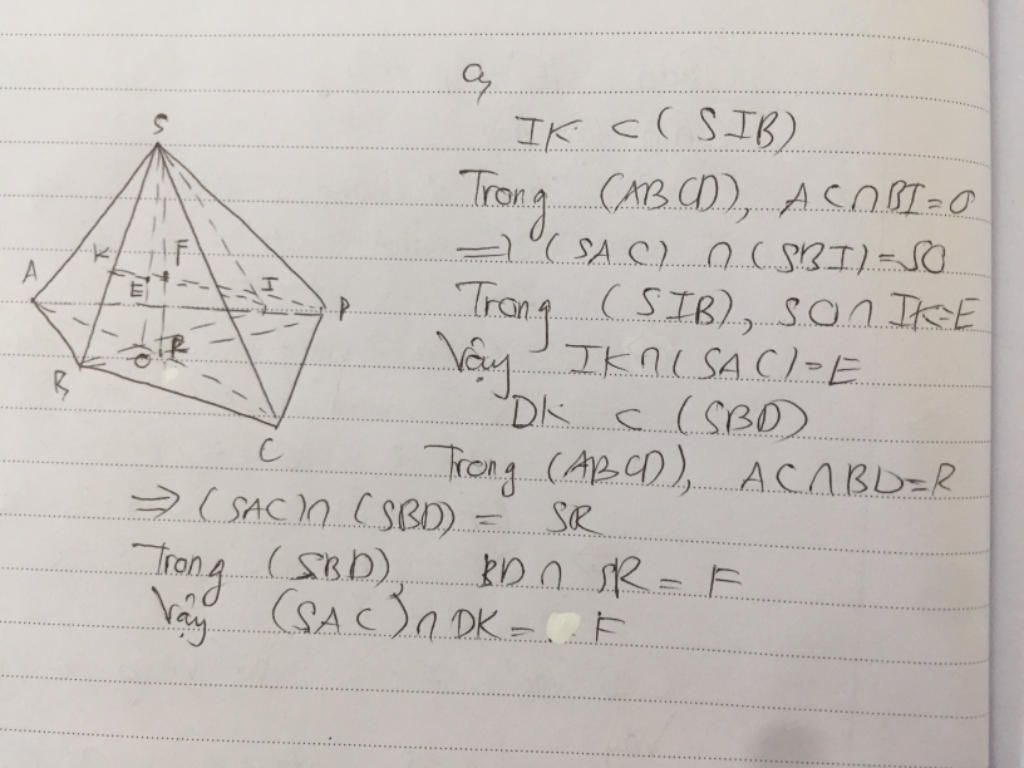 a,
IK ⊂ ( SIB)
Trong (ABCD), AC∩BI=O
=> (SAC) ∩ (SBI)=SO
Trong (SIB), SO∩IK=E
Vậy IK∩(SAC)=E
DK ⊂ (SBD)
Trong (ABCD), AC∩BD=R
=> (SAC)∩ (SBD) = SR
Trong (SBD), KD∩ SR = F
Vậy (SAC)∩DK= F
S
K F
A E I D
O R
B
C